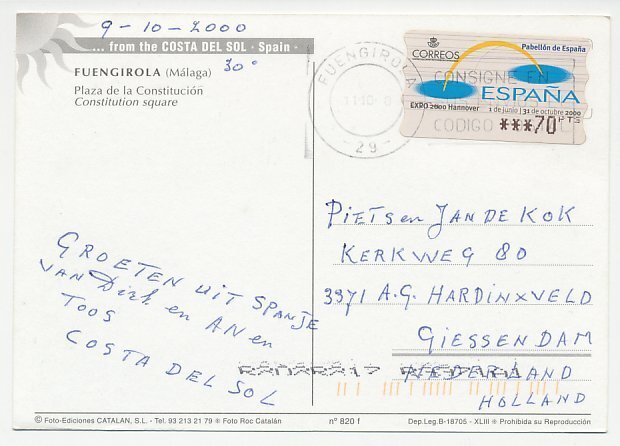 9-10-2000
... from the COSTA DEL SOL · Spain ·
30°
FUENGIROLA (Málaga)
Plaza de la Constitución
Constitution square
GROETEN UIT SPANJE
VAN Dirk en AN en
TOOS
COSTA DEL SOL
FUENGIROLA
11.10.0
- 29 -
CONSIGNE EN
CODIGO
CORREOS
Pabellón de España
ESPAÑA
EXPO 2000 Hannover
1 de junio | 31 de octubre 2000
***70 PTS
PIETS en JAN DE KOK
KERKWEG 80
3371 A.G. HARDINXVELD
GIESSENDAM
NEDERLAND
HOLLAND
© Foto-Ediciones CATALAN, S.L. - Tel. 93 213 21 79 - Foto Roc Catalán
nº 820 f
Dep.Leg.B-18705 - XLIII - Prohibida su Reproducción